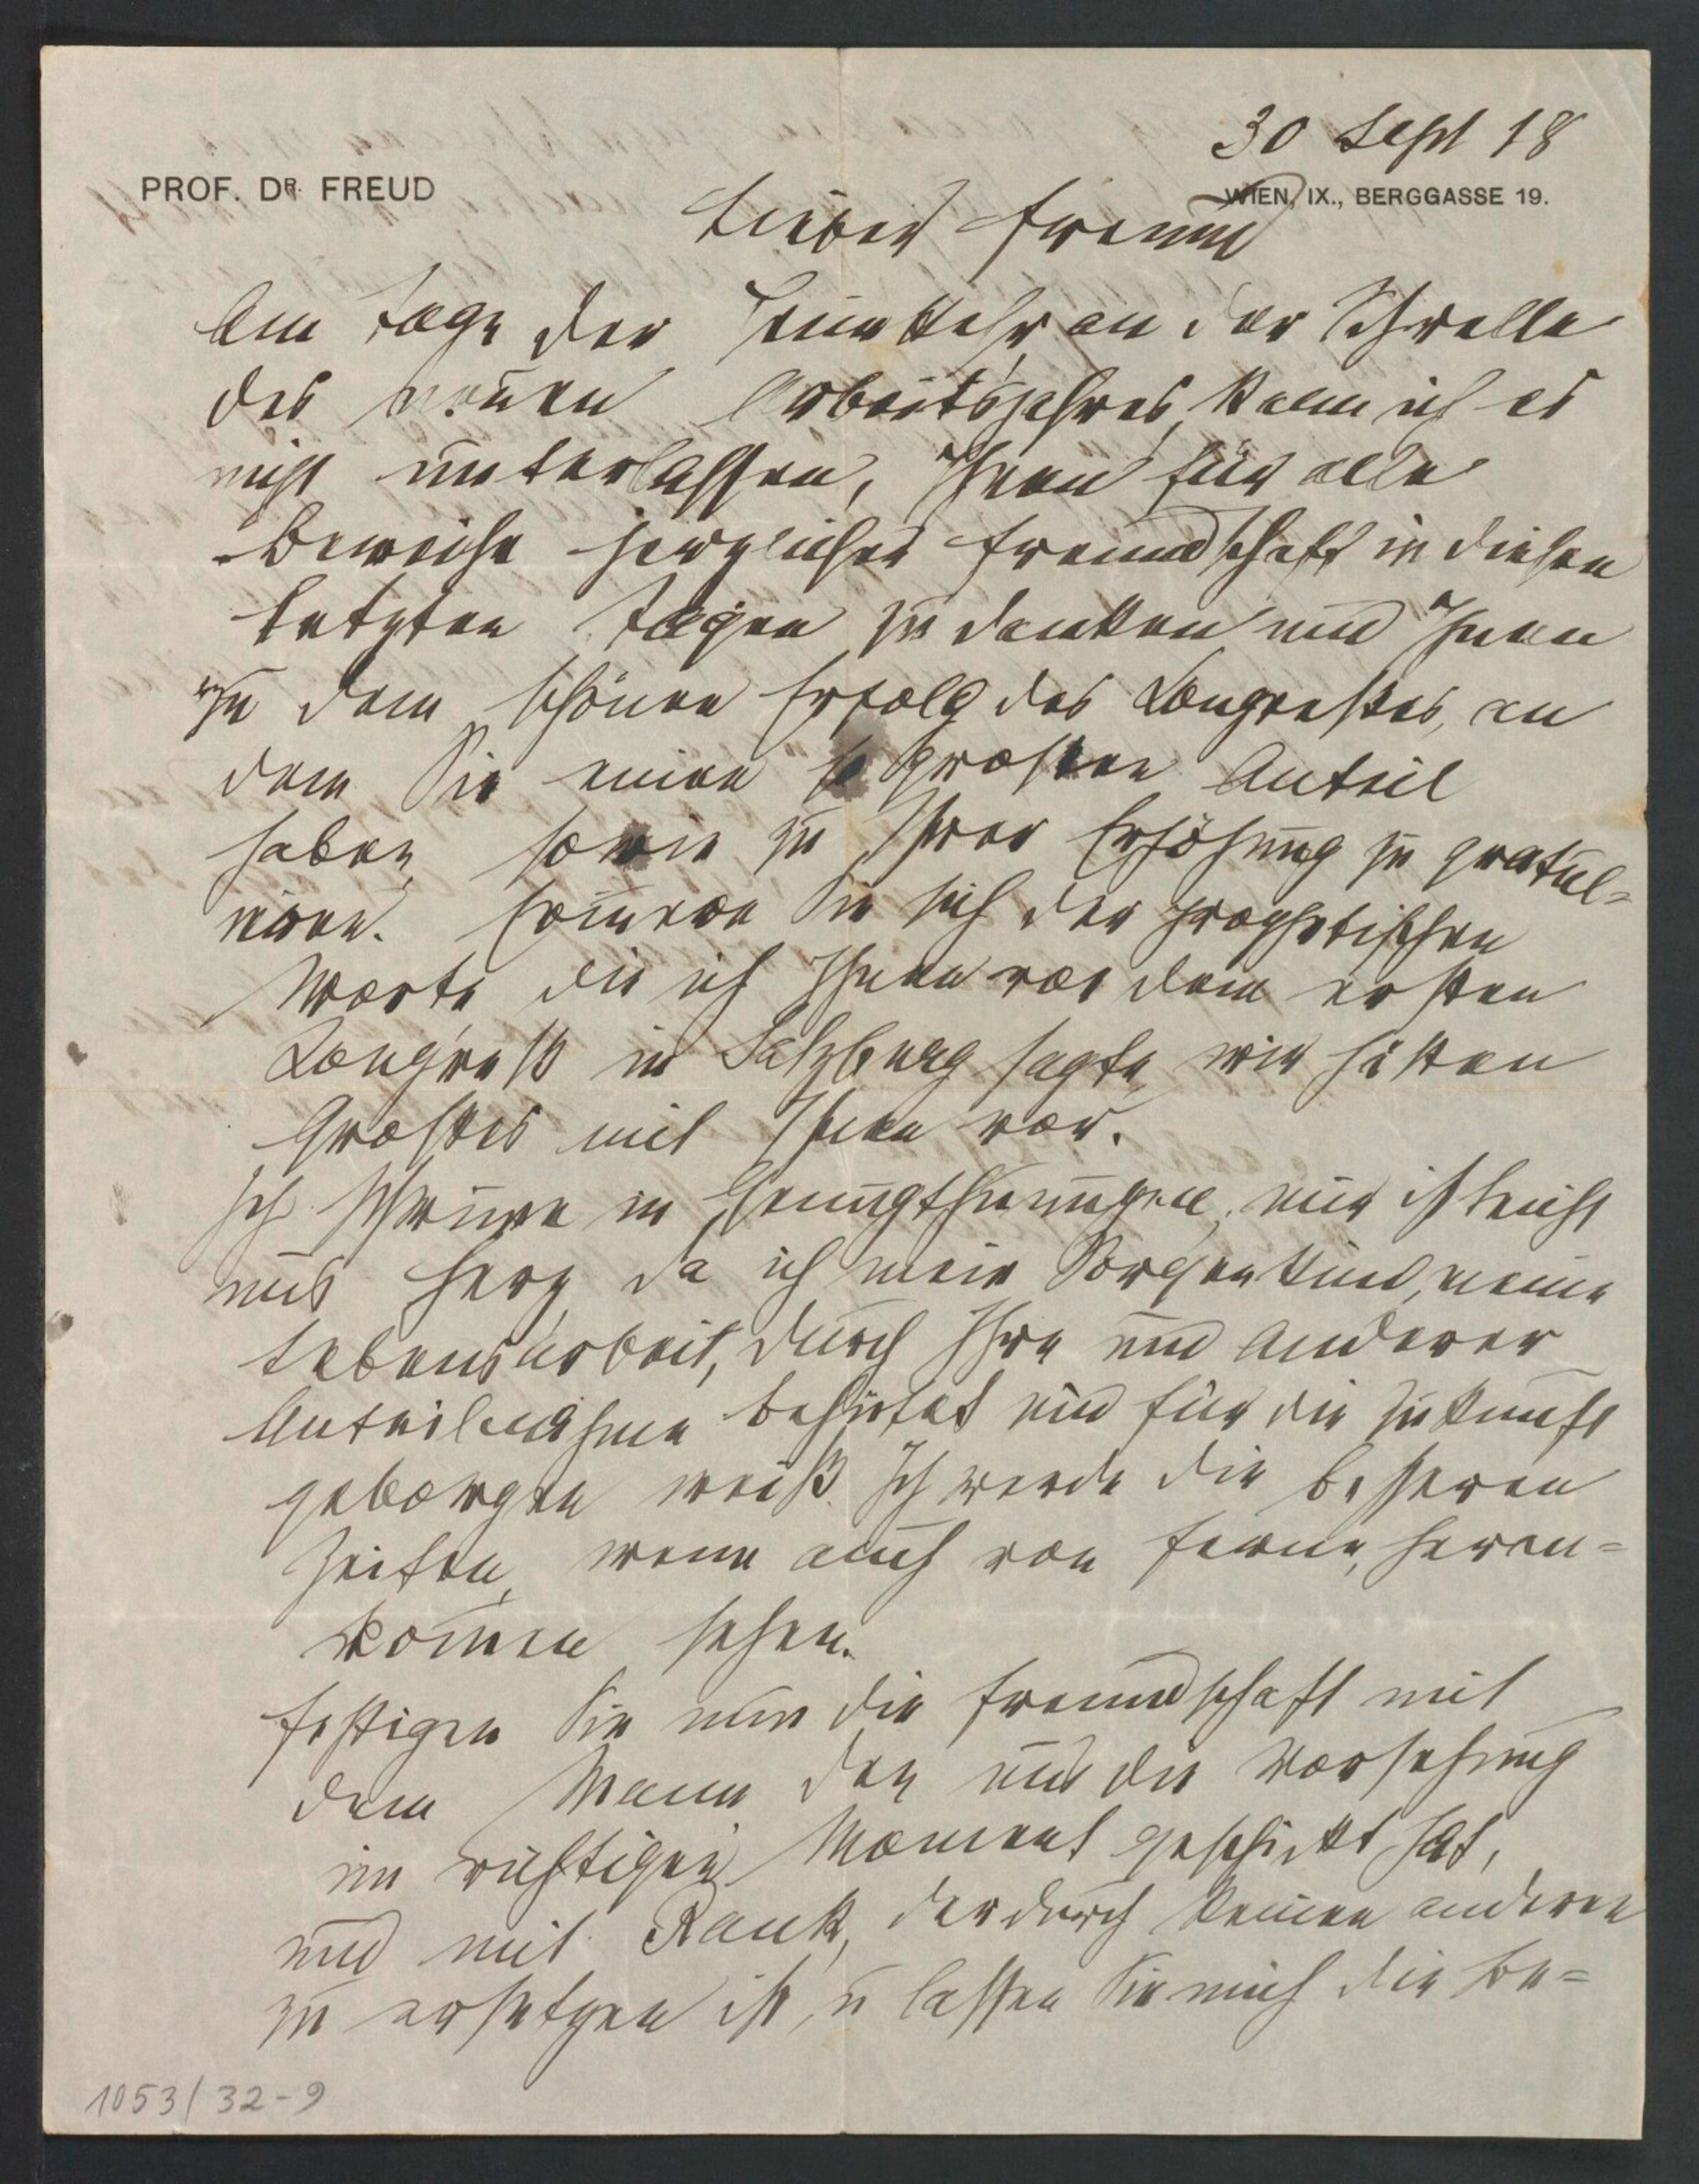 30 Sept 18
PROF. DR. FREUD
WIEN, IX., BERGGASSE 19.
Lieber Freund
Am Tage der Heimkehr, an der Schwelle
des neuen Arbeitsjahres, kann ich es
nicht unterlassen, Ihnen für alle
Beweise herzlicher Freundschaft in diesen
letzten Tagen zu danken und Ihnen
zu dem schönen Erfolg des Congresses, an
dem Sie einen so großen Anteil
haben, sowie zu Ihrer Erhöhung zu gratul=
iren. Erinnern Sie sich der prophetischen
Worte, die ich Ihnen vor dem ersten
Congreß in Salzburg sagte, wir hätten
Großes mit Ihnen vor.
Ich schwimme in, mir ist leicht
ums Herz, da ich mein Sorgenkind, meine
Lebensarbeit, durch Ihre und Anderer
Anteilnahme behütet und für die Zukunft
geborgen weiß. Ich werde die besseren
Zeiten, wenn auch von ferne, heran=
kommen sehen.
Festigen Sie nun die Freundschaft mit
dem Mann, den uns die Vorsehung
im richtigen Moment geschickt hat,
und mit Rank, der durch keinen anderen
zu ersetzen ist, u lassen Sie mich die Be=
1053/32-9